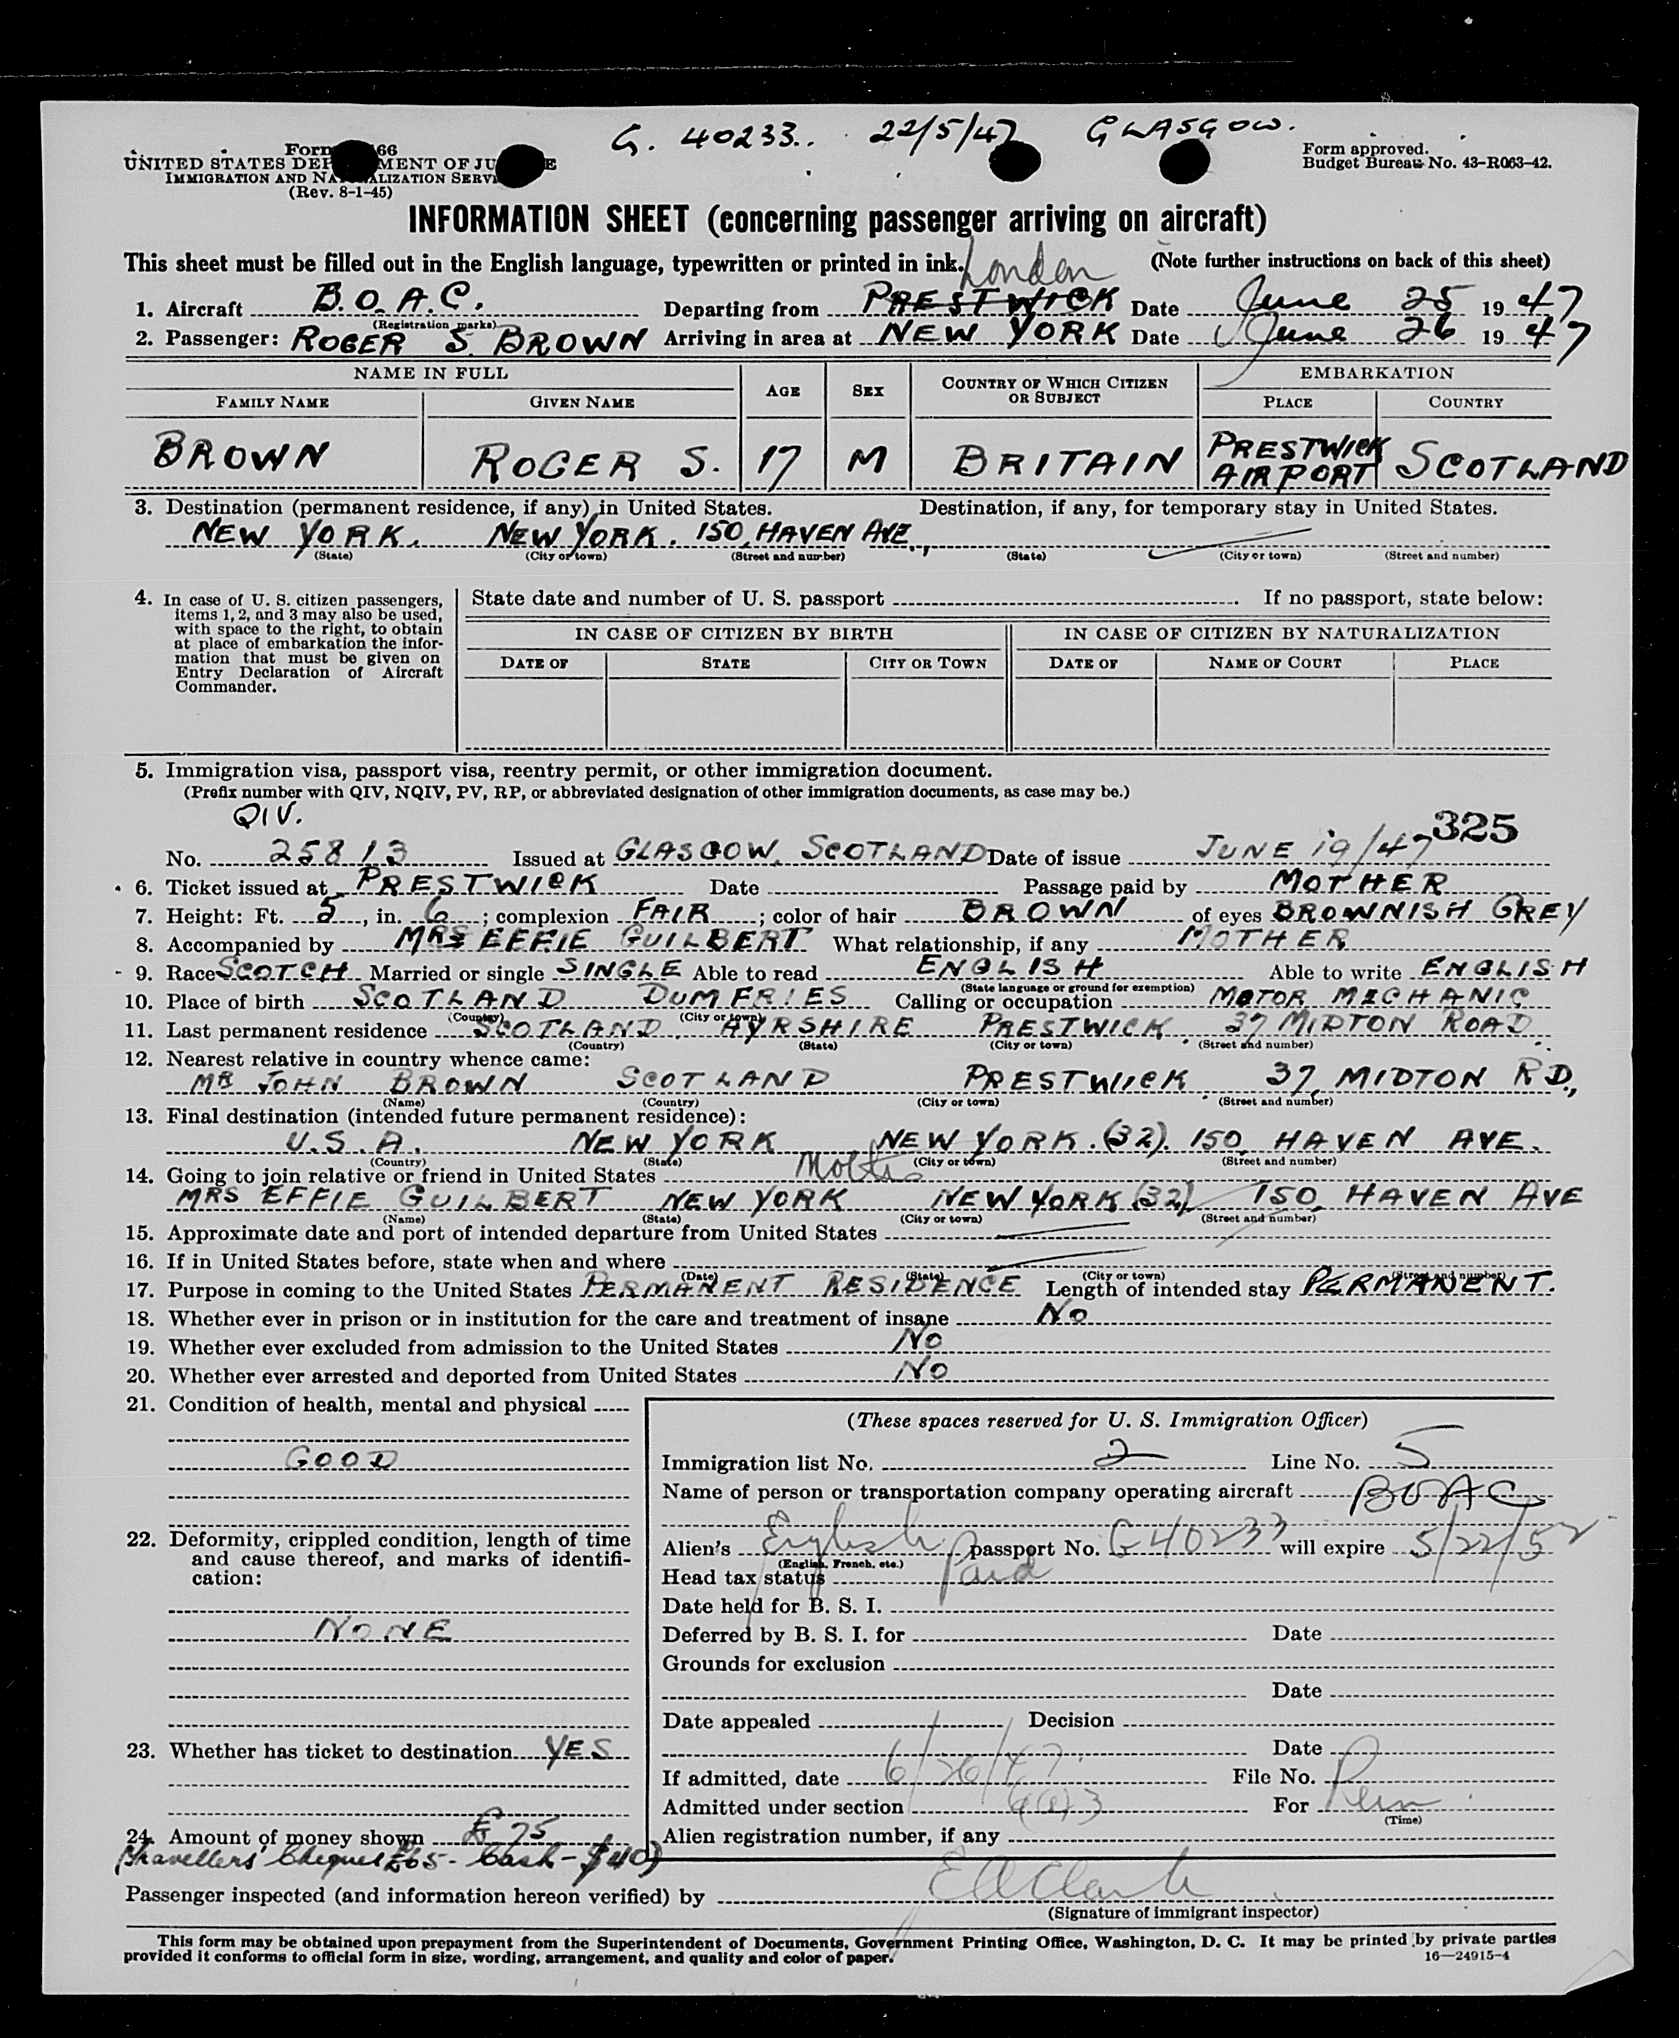 G. 40233.. 22/5/47 GLASGOW.
Form 66
UNITED STATES DEP MENT OF JU E
IMMIGRATION AND NA ALIZATION SERVI
(Rev. 8-1-45)
Form approved.
Budget Bureau No. 43-R063-42.
INFORMATION SHEET (concerning passenger arriving on aircraft)
This sheet must be filled out in the English language, typewritten or printed in ink. (Note further instructions on back of this sheet)
London
1. Aircraft B.O.A.C. Departing from PRESTWICK Date June 25 1947
(Registration marks)
2. Passenger: ROGER S. BROWN Arriving in area at NEW YORK Date June 26 1947
NAME IN FULL AGE SEX COUNTRY OF WHICH CITIZEN OR SUBJECT EMBARKATION
FAMILY NAME GIVEN NAME PLACE COUNTRY
BROWN ROGER S. 17 M BRITAIN PRESTWICK AIRPORT SCOTLAND
3. Destination (permanent residence, if any) in United States. Destination, if any, for temporary stay in United States.
NEW YORK. NEW YORK. 150, HAVEN AVE.,
(State) (City or town) (Street and number) (State) (City or town) (Street and number)
4. In case of U. S. citizen passengers, items 1, 2, and 3 may also be used, with space to the right, to obtain at place of embarkation the information that must be given on Entry Declaration of Aircraft Commander.
State date and number of U. S. passport . If no passport, state below:
IN CASE OF CITIZEN BY BIRTH IN CASE OF CITIZEN BY NATURALIZATION
DATE OF STATE CITY OR TOWN DATE OF NAME OF COURT PLACE
5. Immigration visa, passport visa, reentry permit, or other immigration document.
(Prefix number with QIV, NQIV, PV, RP, or abbreviated designation of other immigration documents, as case may be.)
QIV. 325
No. 25813 Issued at GLASGOW, SCOTLAND Date of issue JUNE 19/47
6. Ticket issued at PRESTWICK Date Passage paid by MOTHER
7. Height: Ft. 5, in. 6; complexion FAIR; color of hair BROWN of eyes BROWNISH GREY
8. Accompanied by MRS EFFIE GUILBERT What relationship, if any MOTHER
9. Race SCOTCH Married or single SINGLE Able to read ENGLISH Able to write ENGLISH
(State language or ground for exemption)
10. Place of birth SCOTLAND DUMFRIES Calling or occupation MOTOR MECHANIC
(Country) (City or town)
11. Last permanent residence SCOTLAND. AYRSHIRE PRESTWICK, 37 MIDTON ROAD
(Country) (State) (City or town) (Street and number)
12. Nearest relative in country whence came:
MR JOHN BROWN SCOTLAND PRESTWICK 37, MIDTON RD.,
(Name) (Country) (City or town) (Street and number)
13. Final destination (intended future permanent residence):
U.S.A. NEW YORK NEW YORK. (32). 150, HAVEN AVE.
(Country) (State) (City or town) (Street and number)
14. Going to join relative or friend in United States Mother
MRS EFFIE GUILBERT NEW YORK NEW YORK (32) 150, HAVEN AVE
(Name) (State) (City or town) (Street and number)
15. Approximate date and port of intended departure from United States
16. If in United States before, state when and where
(Date) (State) (City or town) (Street and number)
17. Purpose in coming to the United States PERMANENT RESIDENCE Length of intended stay PERMANENT.
18. Whether ever in prison or in institution for the care and treatment of insane NO
19. Whether ever excluded from admission to the United States NO
20. Whether ever arrested and deported from United States NO
21. Condition of health, mental and physical
GOOD
22. Deformity, crippled condition, length of time and cause thereof, and marks of identification:
NONE
23. Whether has ticket to destination YES
24. Amount of money shown £75
(Travellers' Cheques £65 - Cash - $40)
(These spaces reserved for U. S. Immigration Officer)
Immigration list No. 2 Line No. 5
Name of person or transportation company operating aircraft BOAC
Alien's English passport No. G 40233 will expire 5/22/52
(English, French, etc.)
Head tax status Paid
Date held for B. S. I.
Deferred by B. S. I. for Date
Grounds for exclusion
Date
Date appealed Decision
Date
If admitted, date 6/26/47 File No.
Admitted under section 6(a)3 For Perm
(Time)
Alien registration number, if any
Passenger inspected (and information hereon verified) by E A Clark
(Signature of immigrant inspector)
This form may be obtained upon prepayment from the Superintendent of Documents, Government Printing Office, Washington, D. C. It may be printed by private parties
provided it conforms to official form in size, wording, arrangement, and quality and color of paper.
16—24915-4